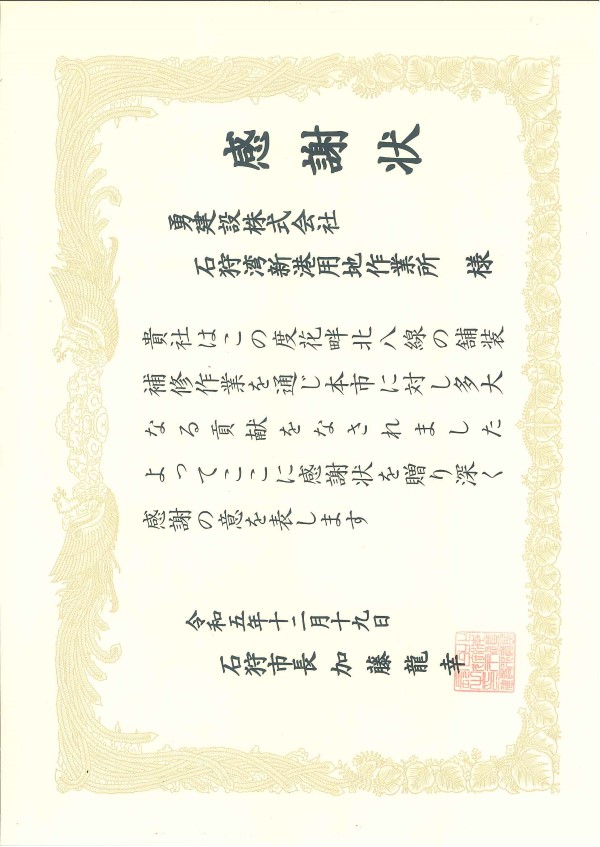 感謝状
勇建設株式会社
石狩湾新港用地作業所 様
貴社はこの度花畔北八線の舗装
補修作業を通じ本市に対し多大
なる貢献をなされました
よってここに感謝状を贈り深く
感謝の意を表します
令和五年十二月十九日
石狩市長 加藤龍幸